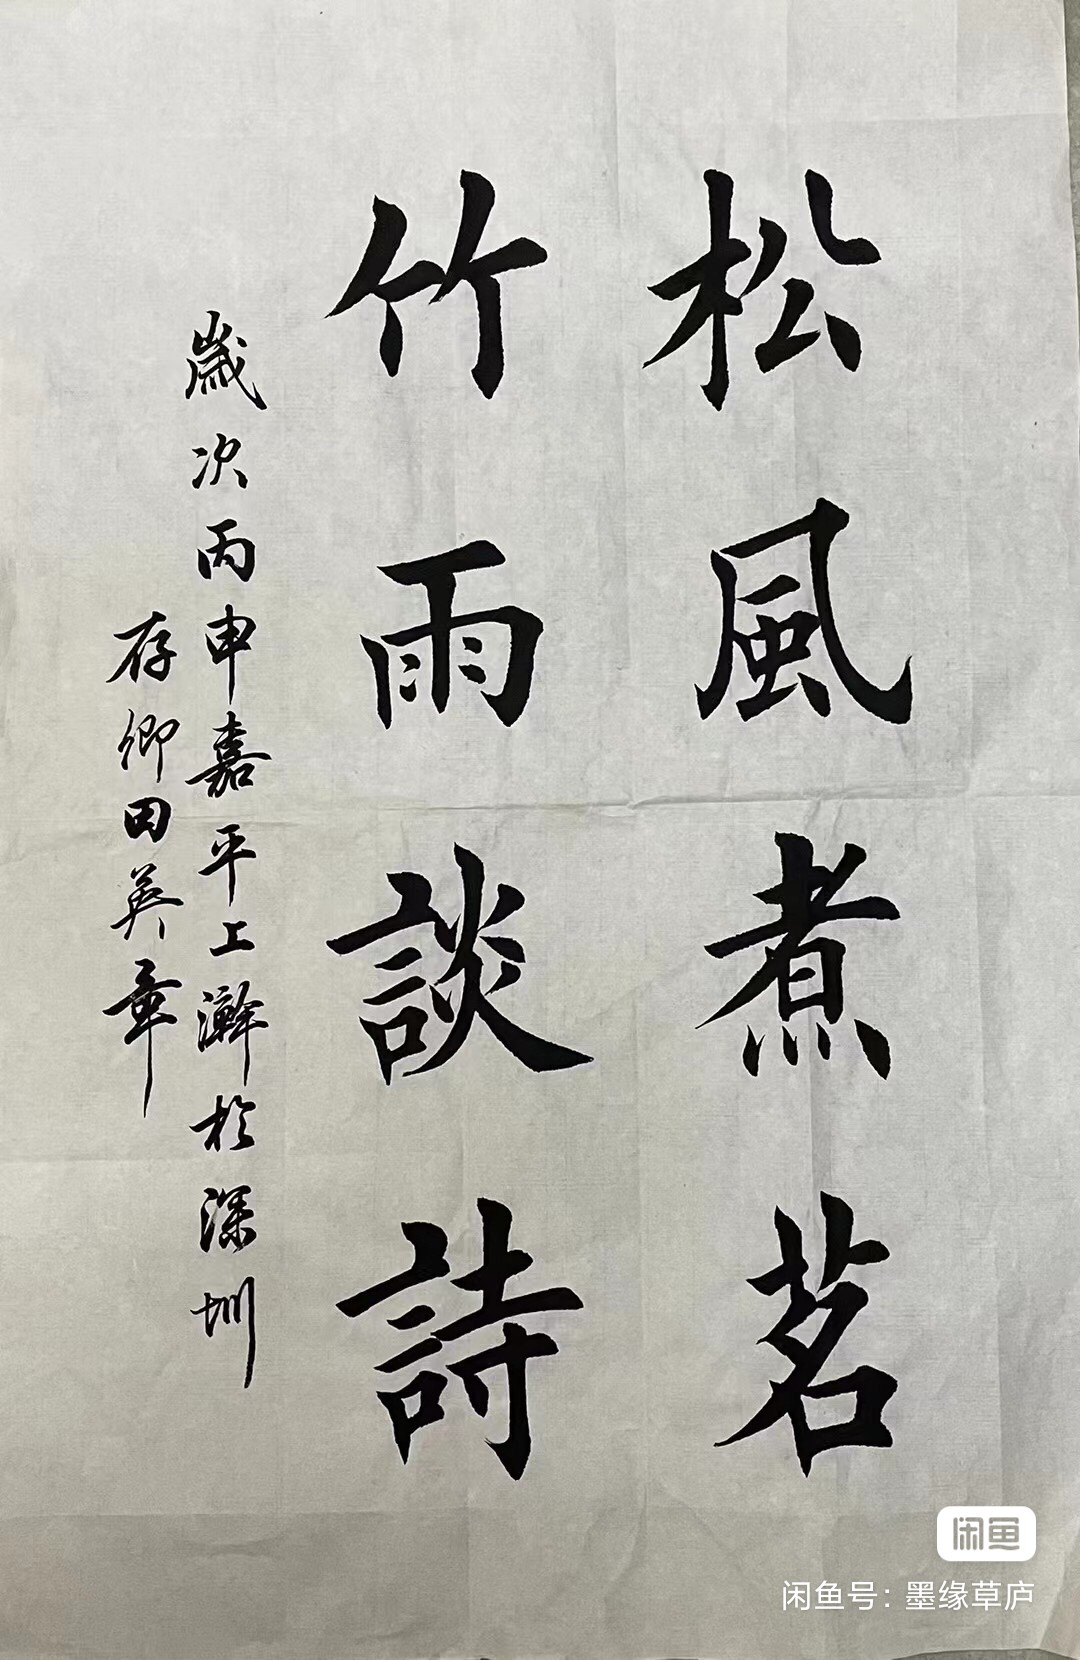 松風煮茗
竹雨談詩
歲次丙申嘉平上澣於深圳
存卿田英章
闲鱼
闲鱼号：墨缘草庐